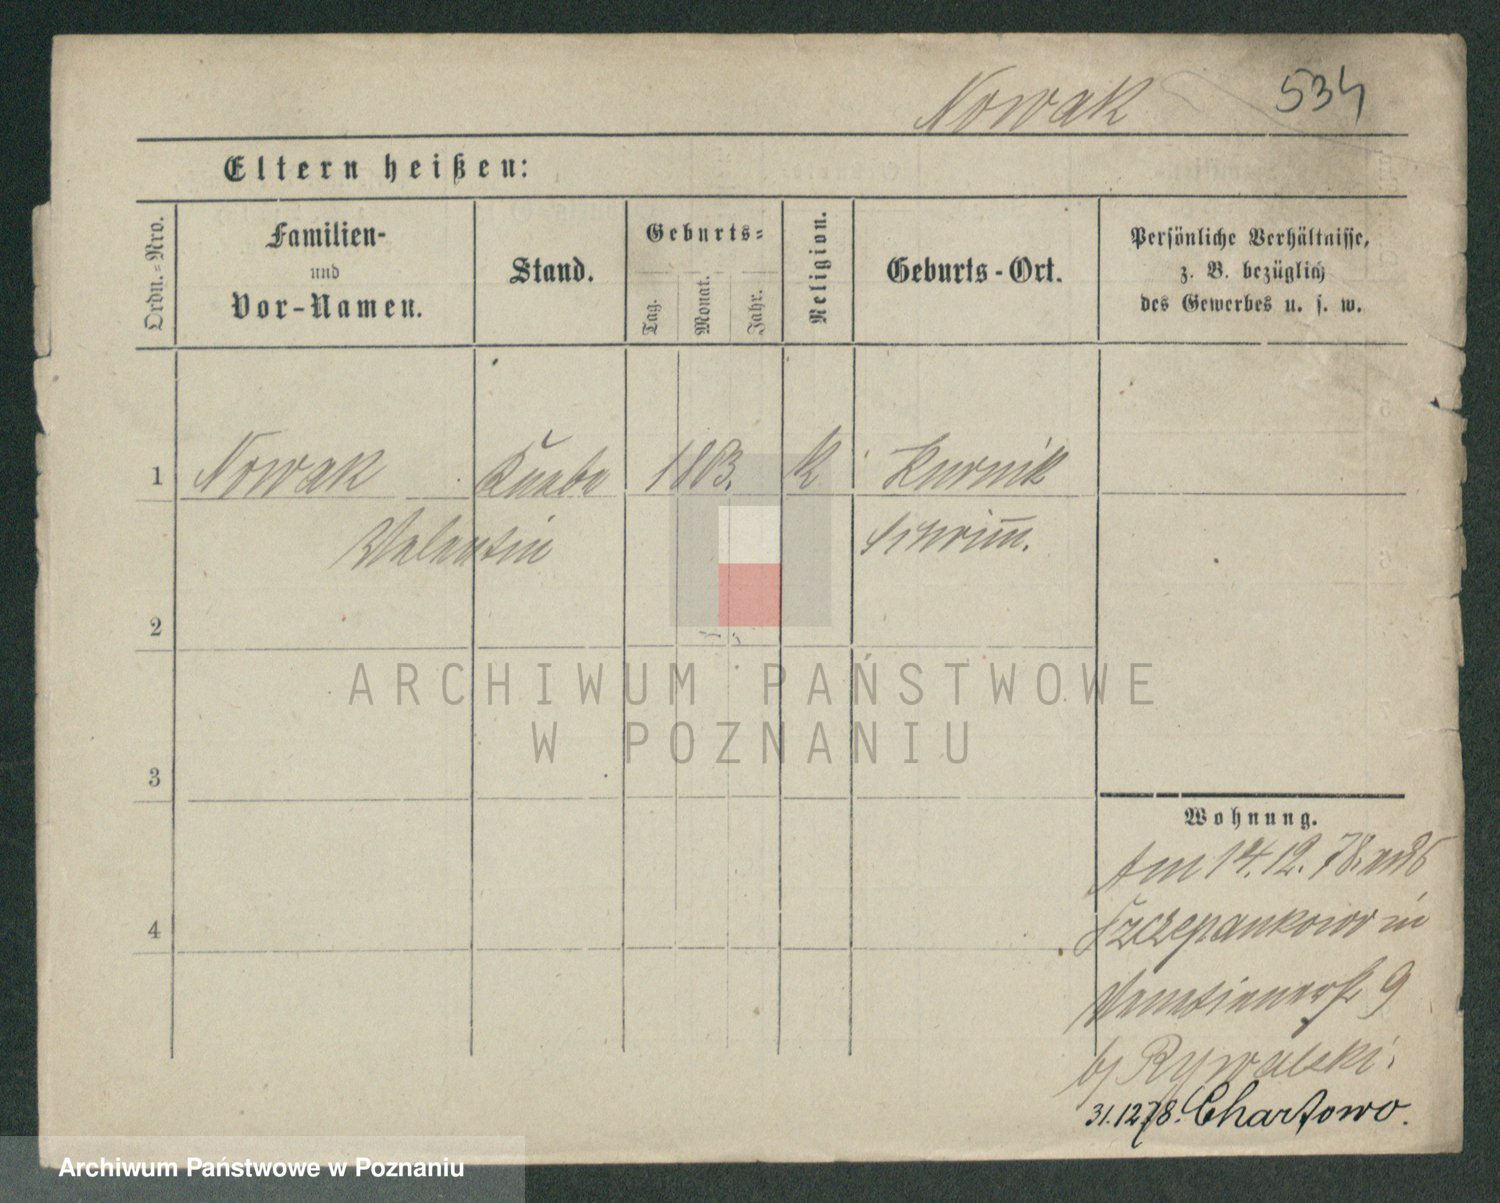 Nowak 534
Eltern heißen:
Ordn.=Nro.
Familien-
und
Vor-Namen.
Stand.
Geburts=
Tag.
Monat.
Jahr.
Religion.
Geburts-Ort.
Persönliche Verhältnisse,
z. B. bezüglich
des Gewerbes u. s. w.
1 Nowak Knabe K Kurnik
Valentin Schrimm.
2
3
4
Wohnung.
Am 14.12.78. aus
Szczepankowo in
Venetianerstr. 9
b/ Rywalski.
31.12.78. Chartowo.
ARCHIWUM PAŃSTWOWE
W POZNANIU
Archiwum Państwowe w Poznaniu